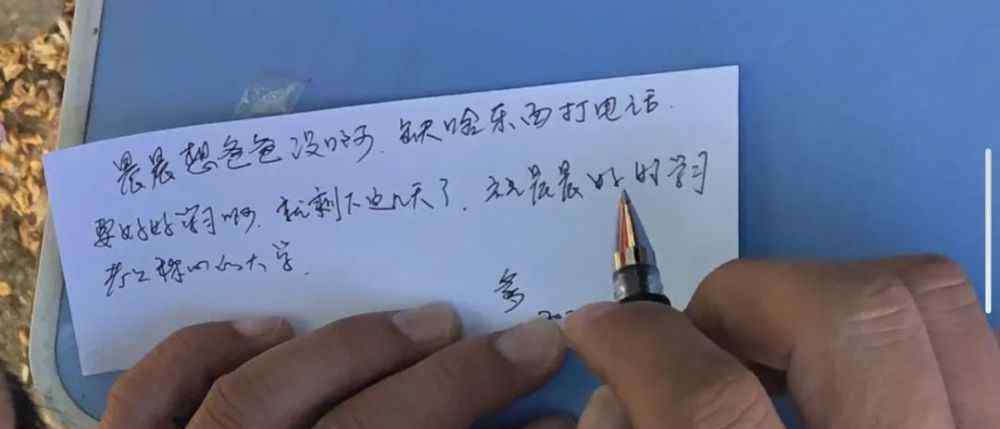 晨晨想爸爸没啊,缺啥东西打电话.
要好好学习啊,就剩下这几天了,祝晨晨好好学习
考上称心的大学.
爸
202